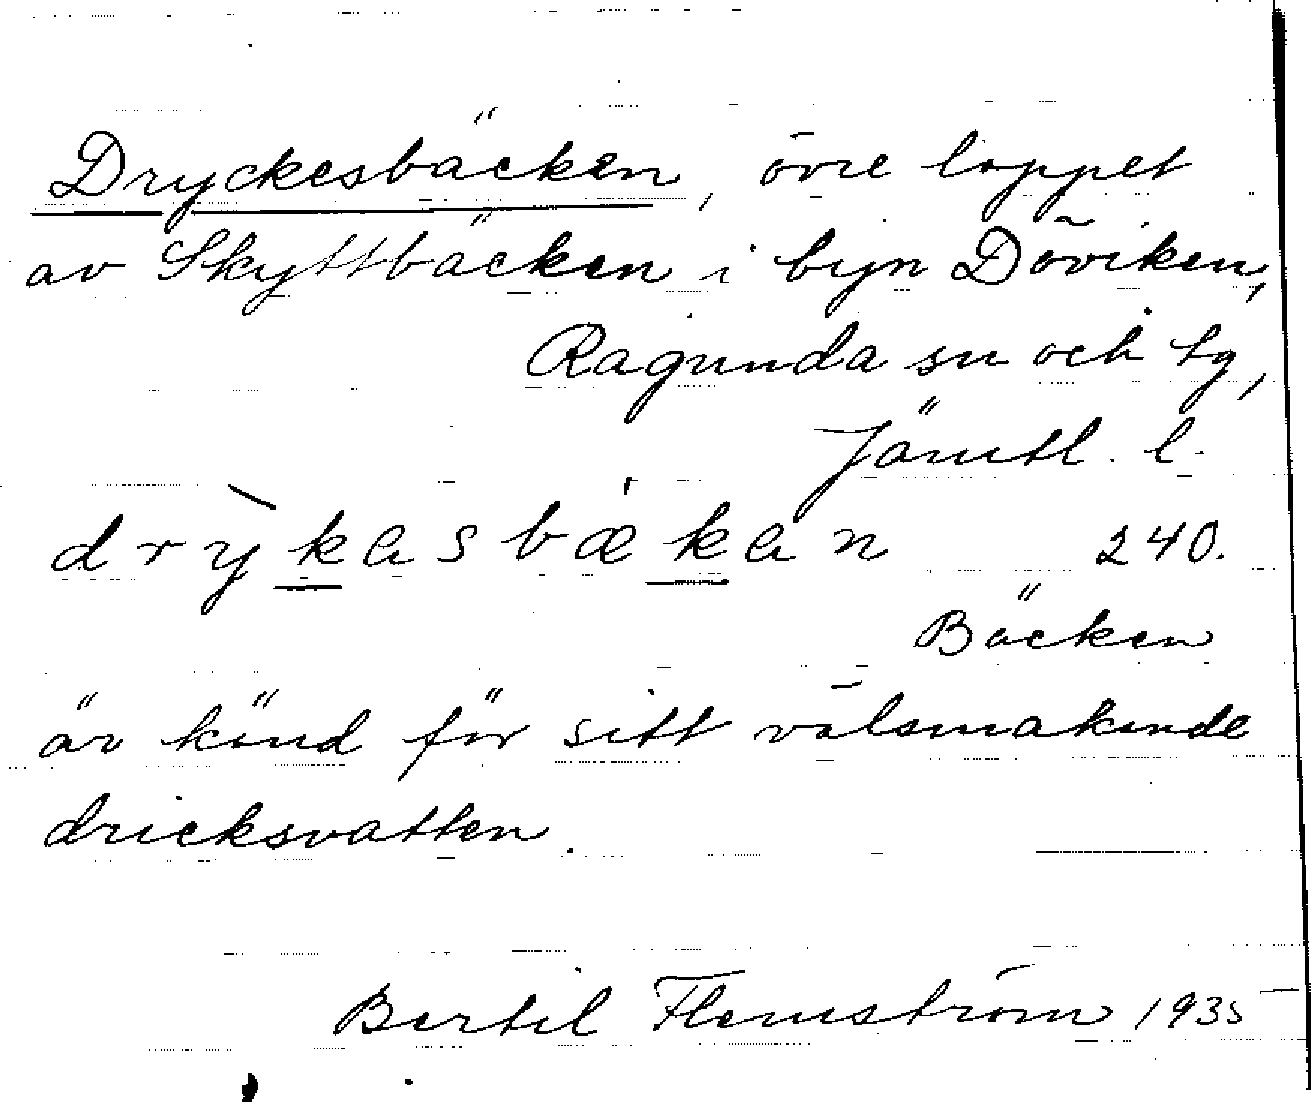 Dryckesbäcken, övre loppet
av Skyttbäcken i byn Döviken,
Ragunda sn och tg,
Jämtl. l.
drỳkasbækan 240.
Bäcken
är känd för sitt välsmakande
dricksvatten.
Bertil Flemström 1935